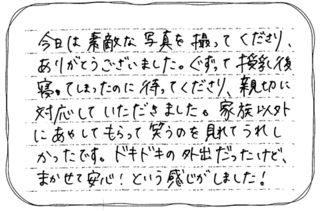 今日は素敵な写真を撮ってくださり、
ありがとうございました。ぐずって授乳後
寝てしまったのに待ってくださり、親切に
対応していただきました。家族以外
にあやしてもらって笑うのを見れてうれし
かったです。ドキドキの外出だったけど、
まかせて安心！という感じがしました！